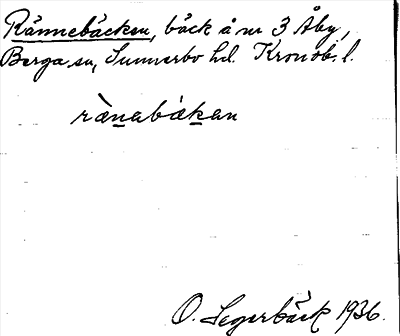 Rännebäcken, bäck å nr 3 Åby,
Berga sn, Sunnerbo hd. Kronob. l.
rànabákan
O. Segerbäck 1936.